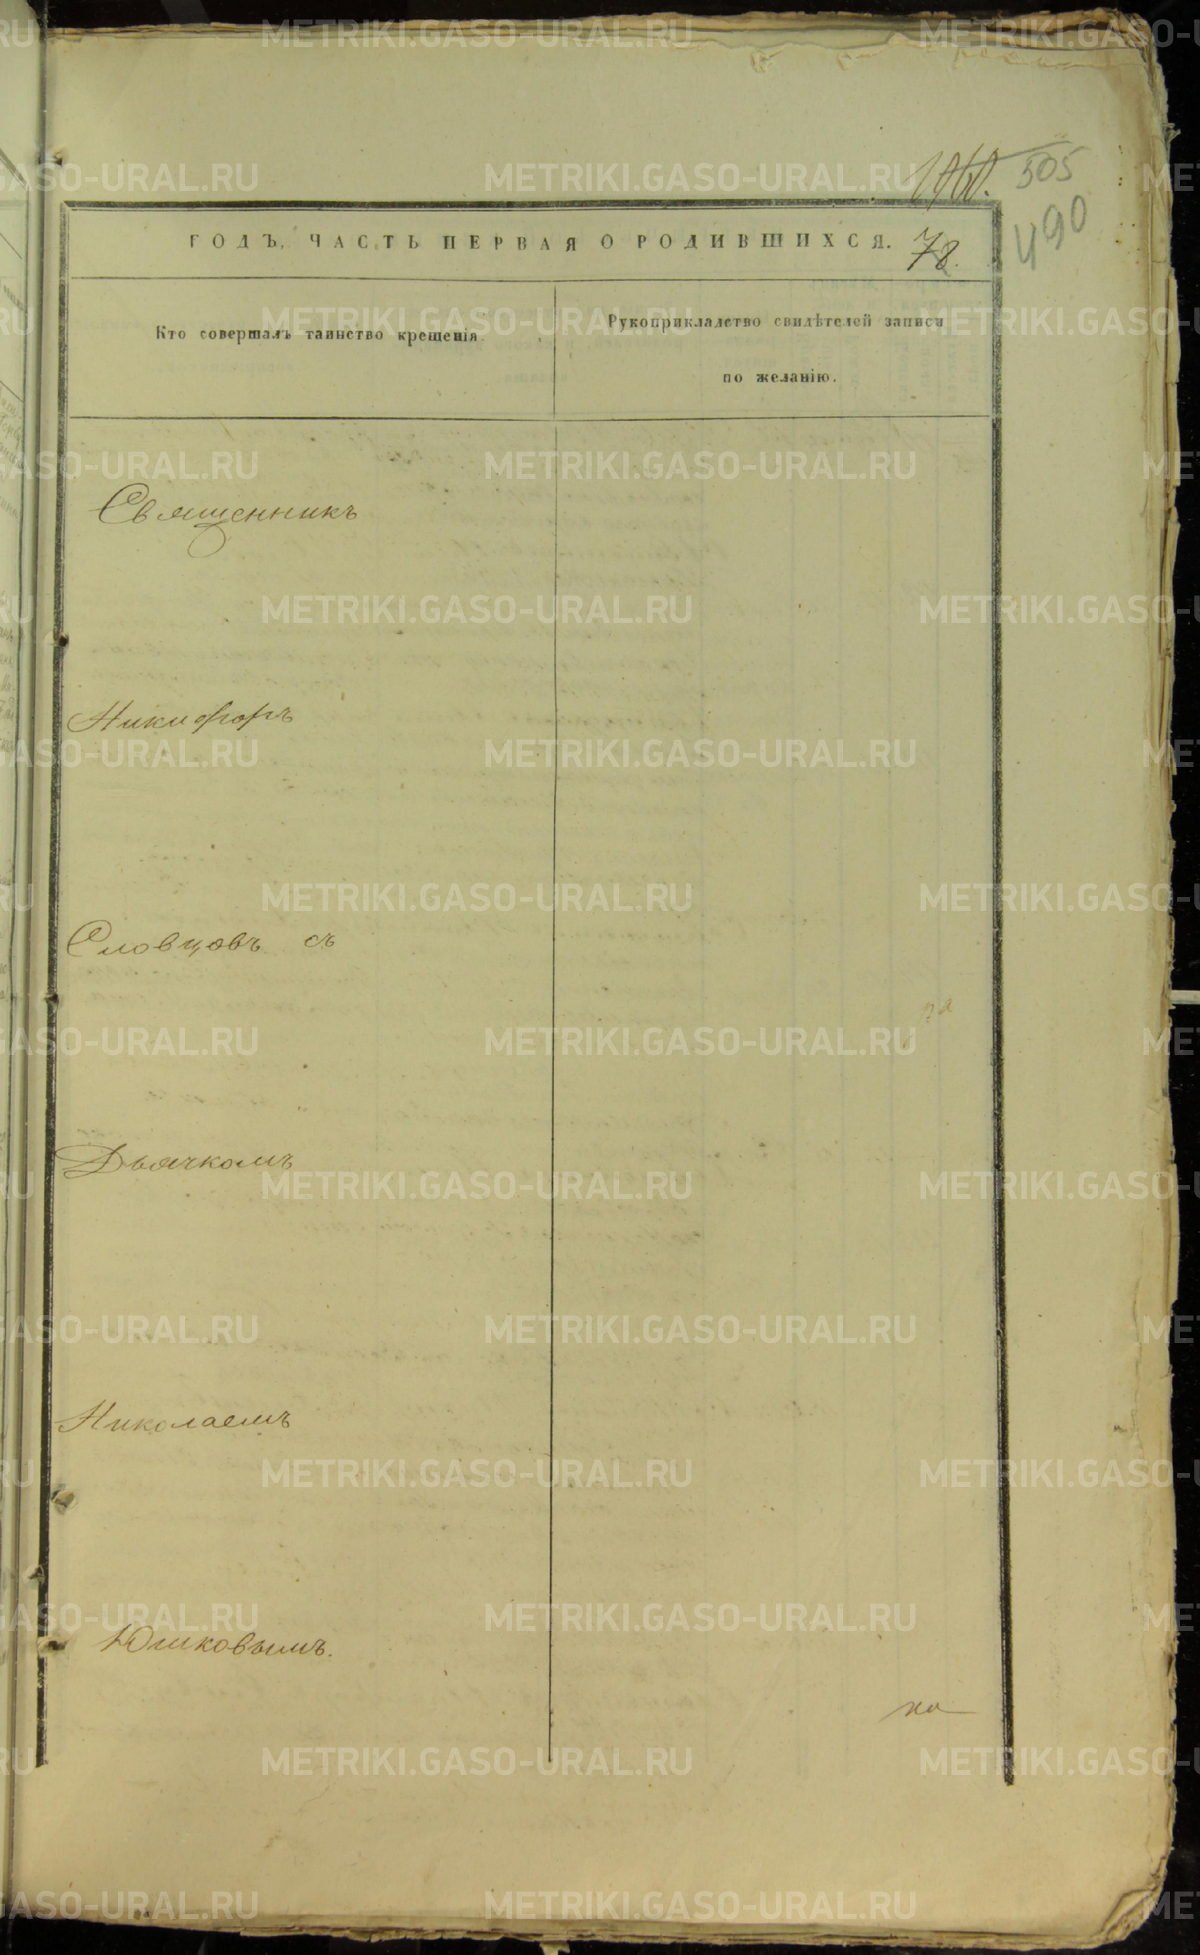 505
490
ГОДЪ, ЧАСТЬ ПЕРВАЯ О РОДИВШИХСЯ. 78.
Кто совершалъ таинство крещенія.
Рукоприкладство свидѣтелей записи
по желанію.
Священникъ
Никифоръ
Словцовъ съ
Дьячкомъ
Николаемъ
Юшковымъ.
METRIKI.GASO-URAL.RU